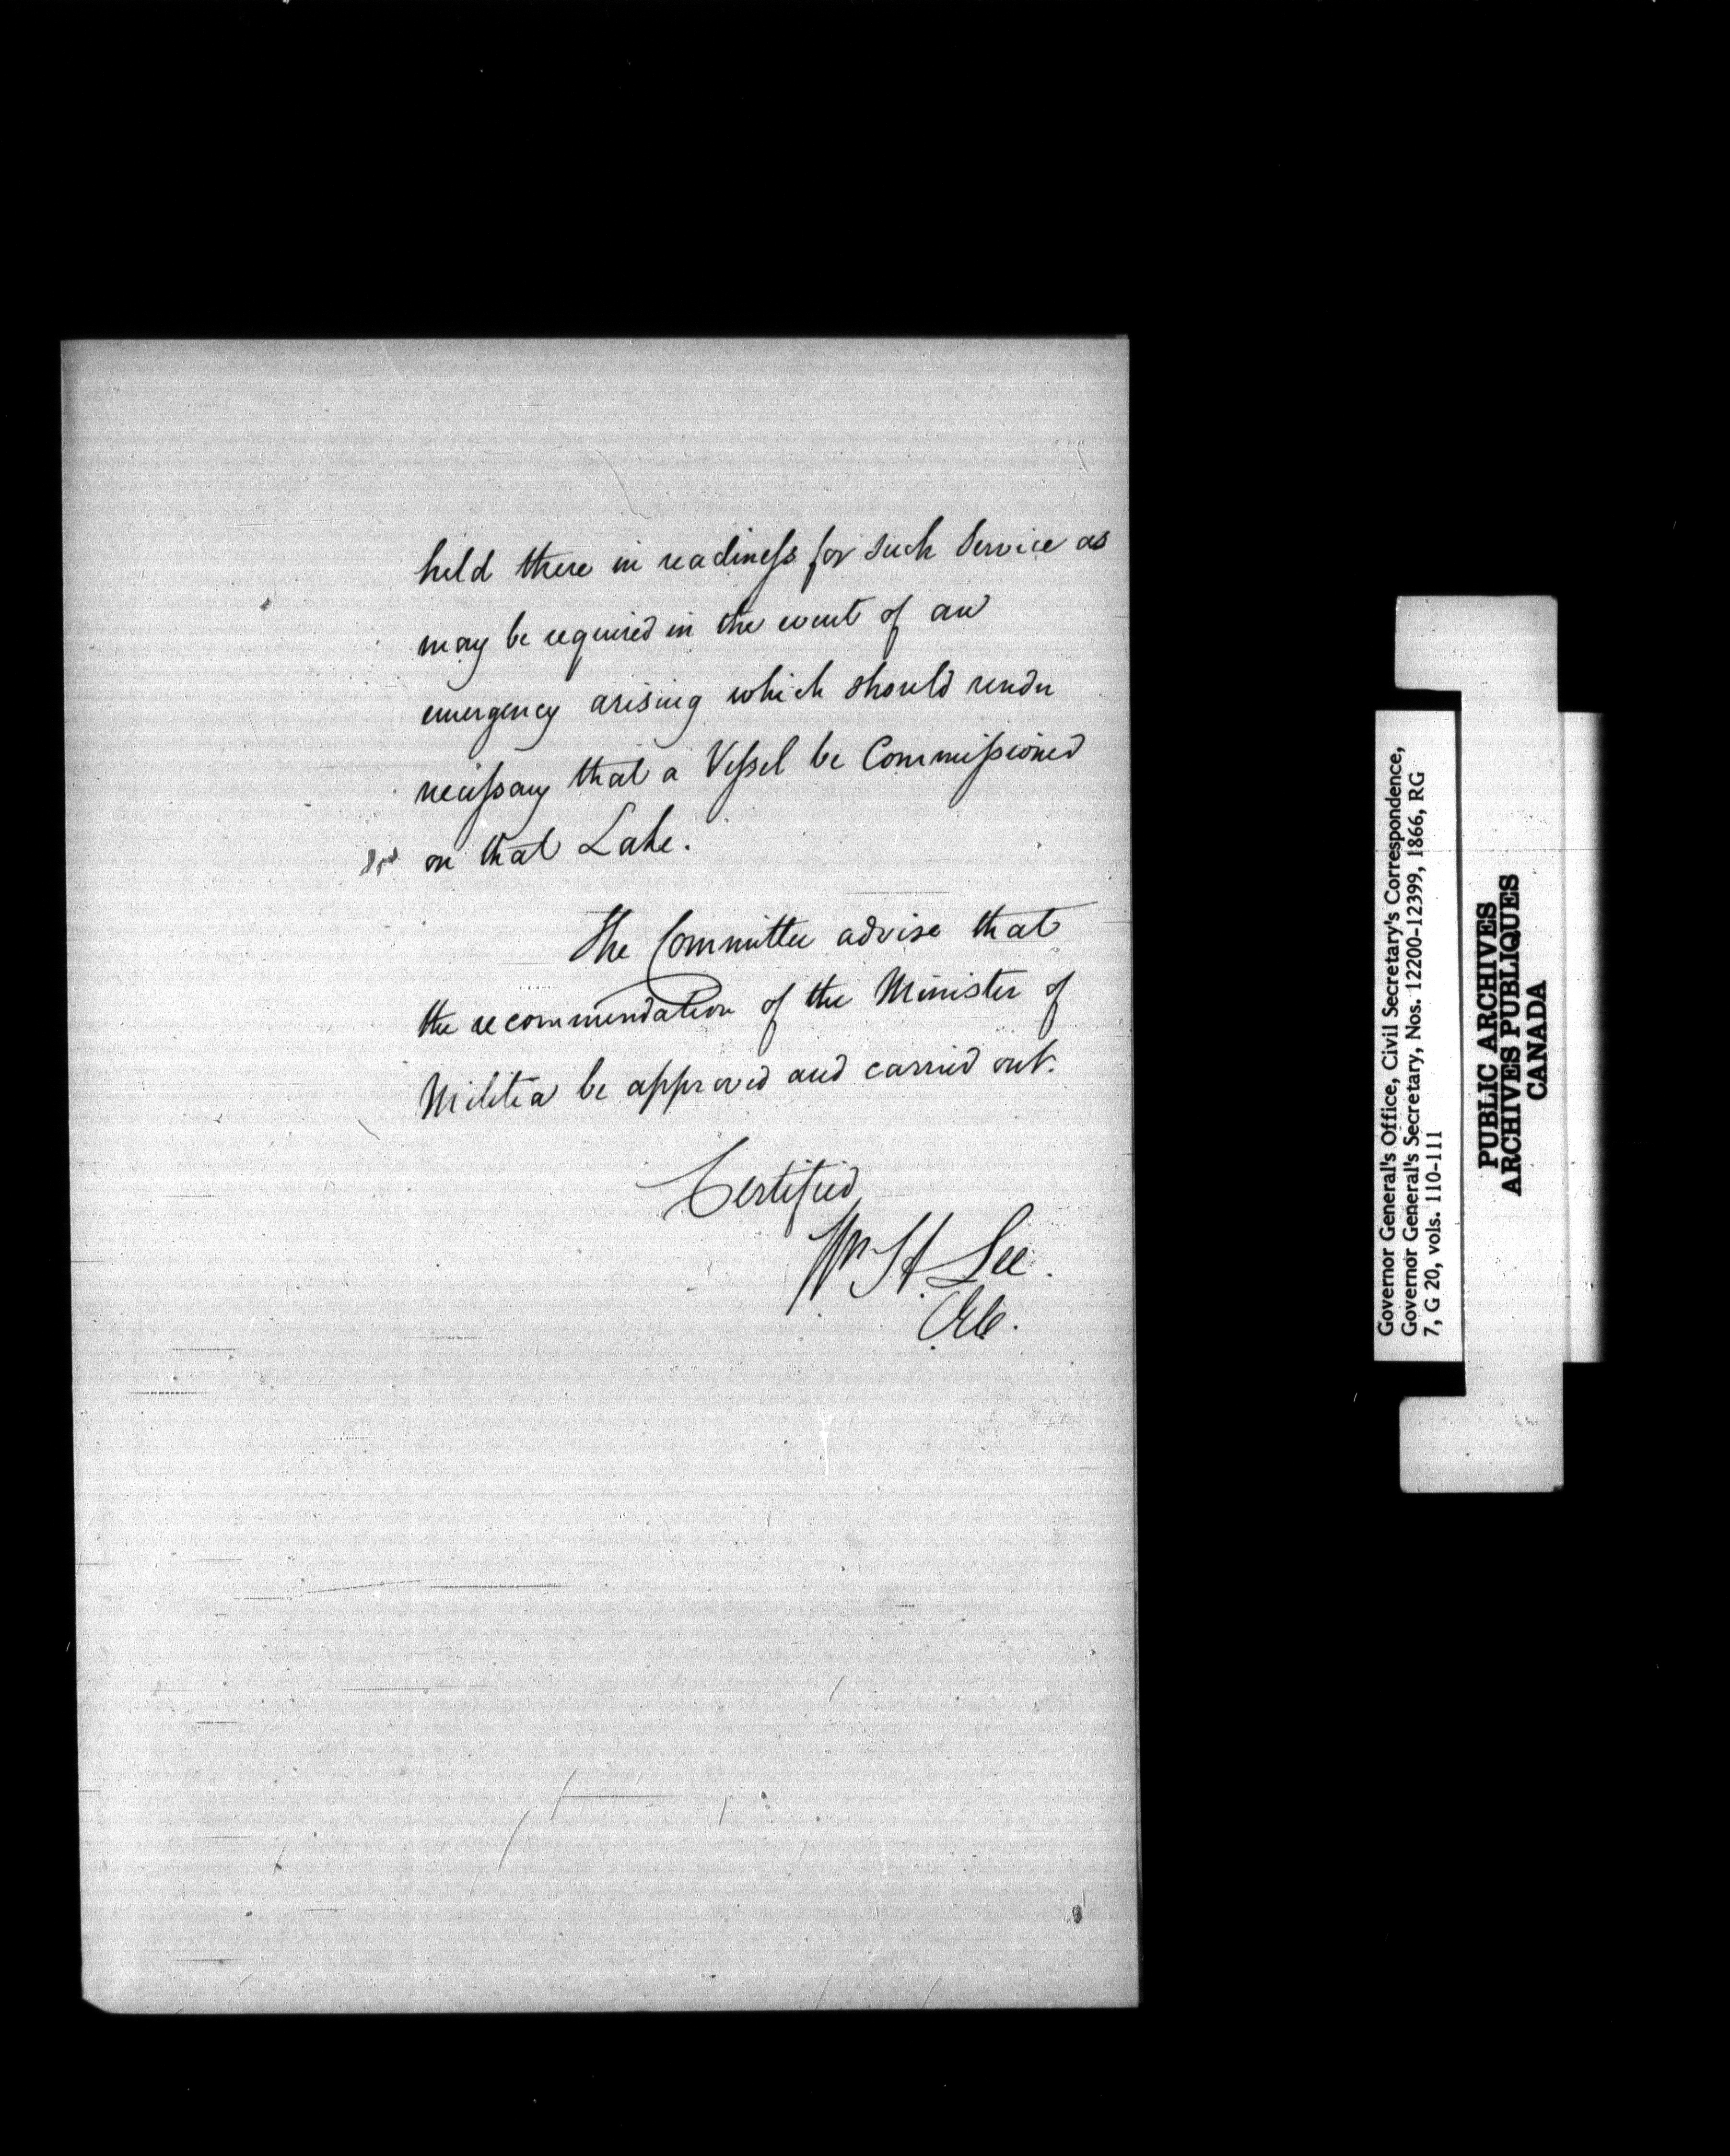 held there in readiness for such Service as
may be required in the event of an
emergency arising which should render
necessary that a Vessel be Commissioned
on that Lake.
The Committee advise that
the recommendation of the Minister of
Militia be approved and carried out.
Certified
Wm H. Lee.
CEC.
Governor General's Office, Civil Secretary's Correspondence,
Governor General's Secretary, Nos. 12200-12399, 1866, RG
7, G 20, vols. 110-111
PUBLIC ARCHIVES
ARCHIVES PUBLIQUES
CANADA